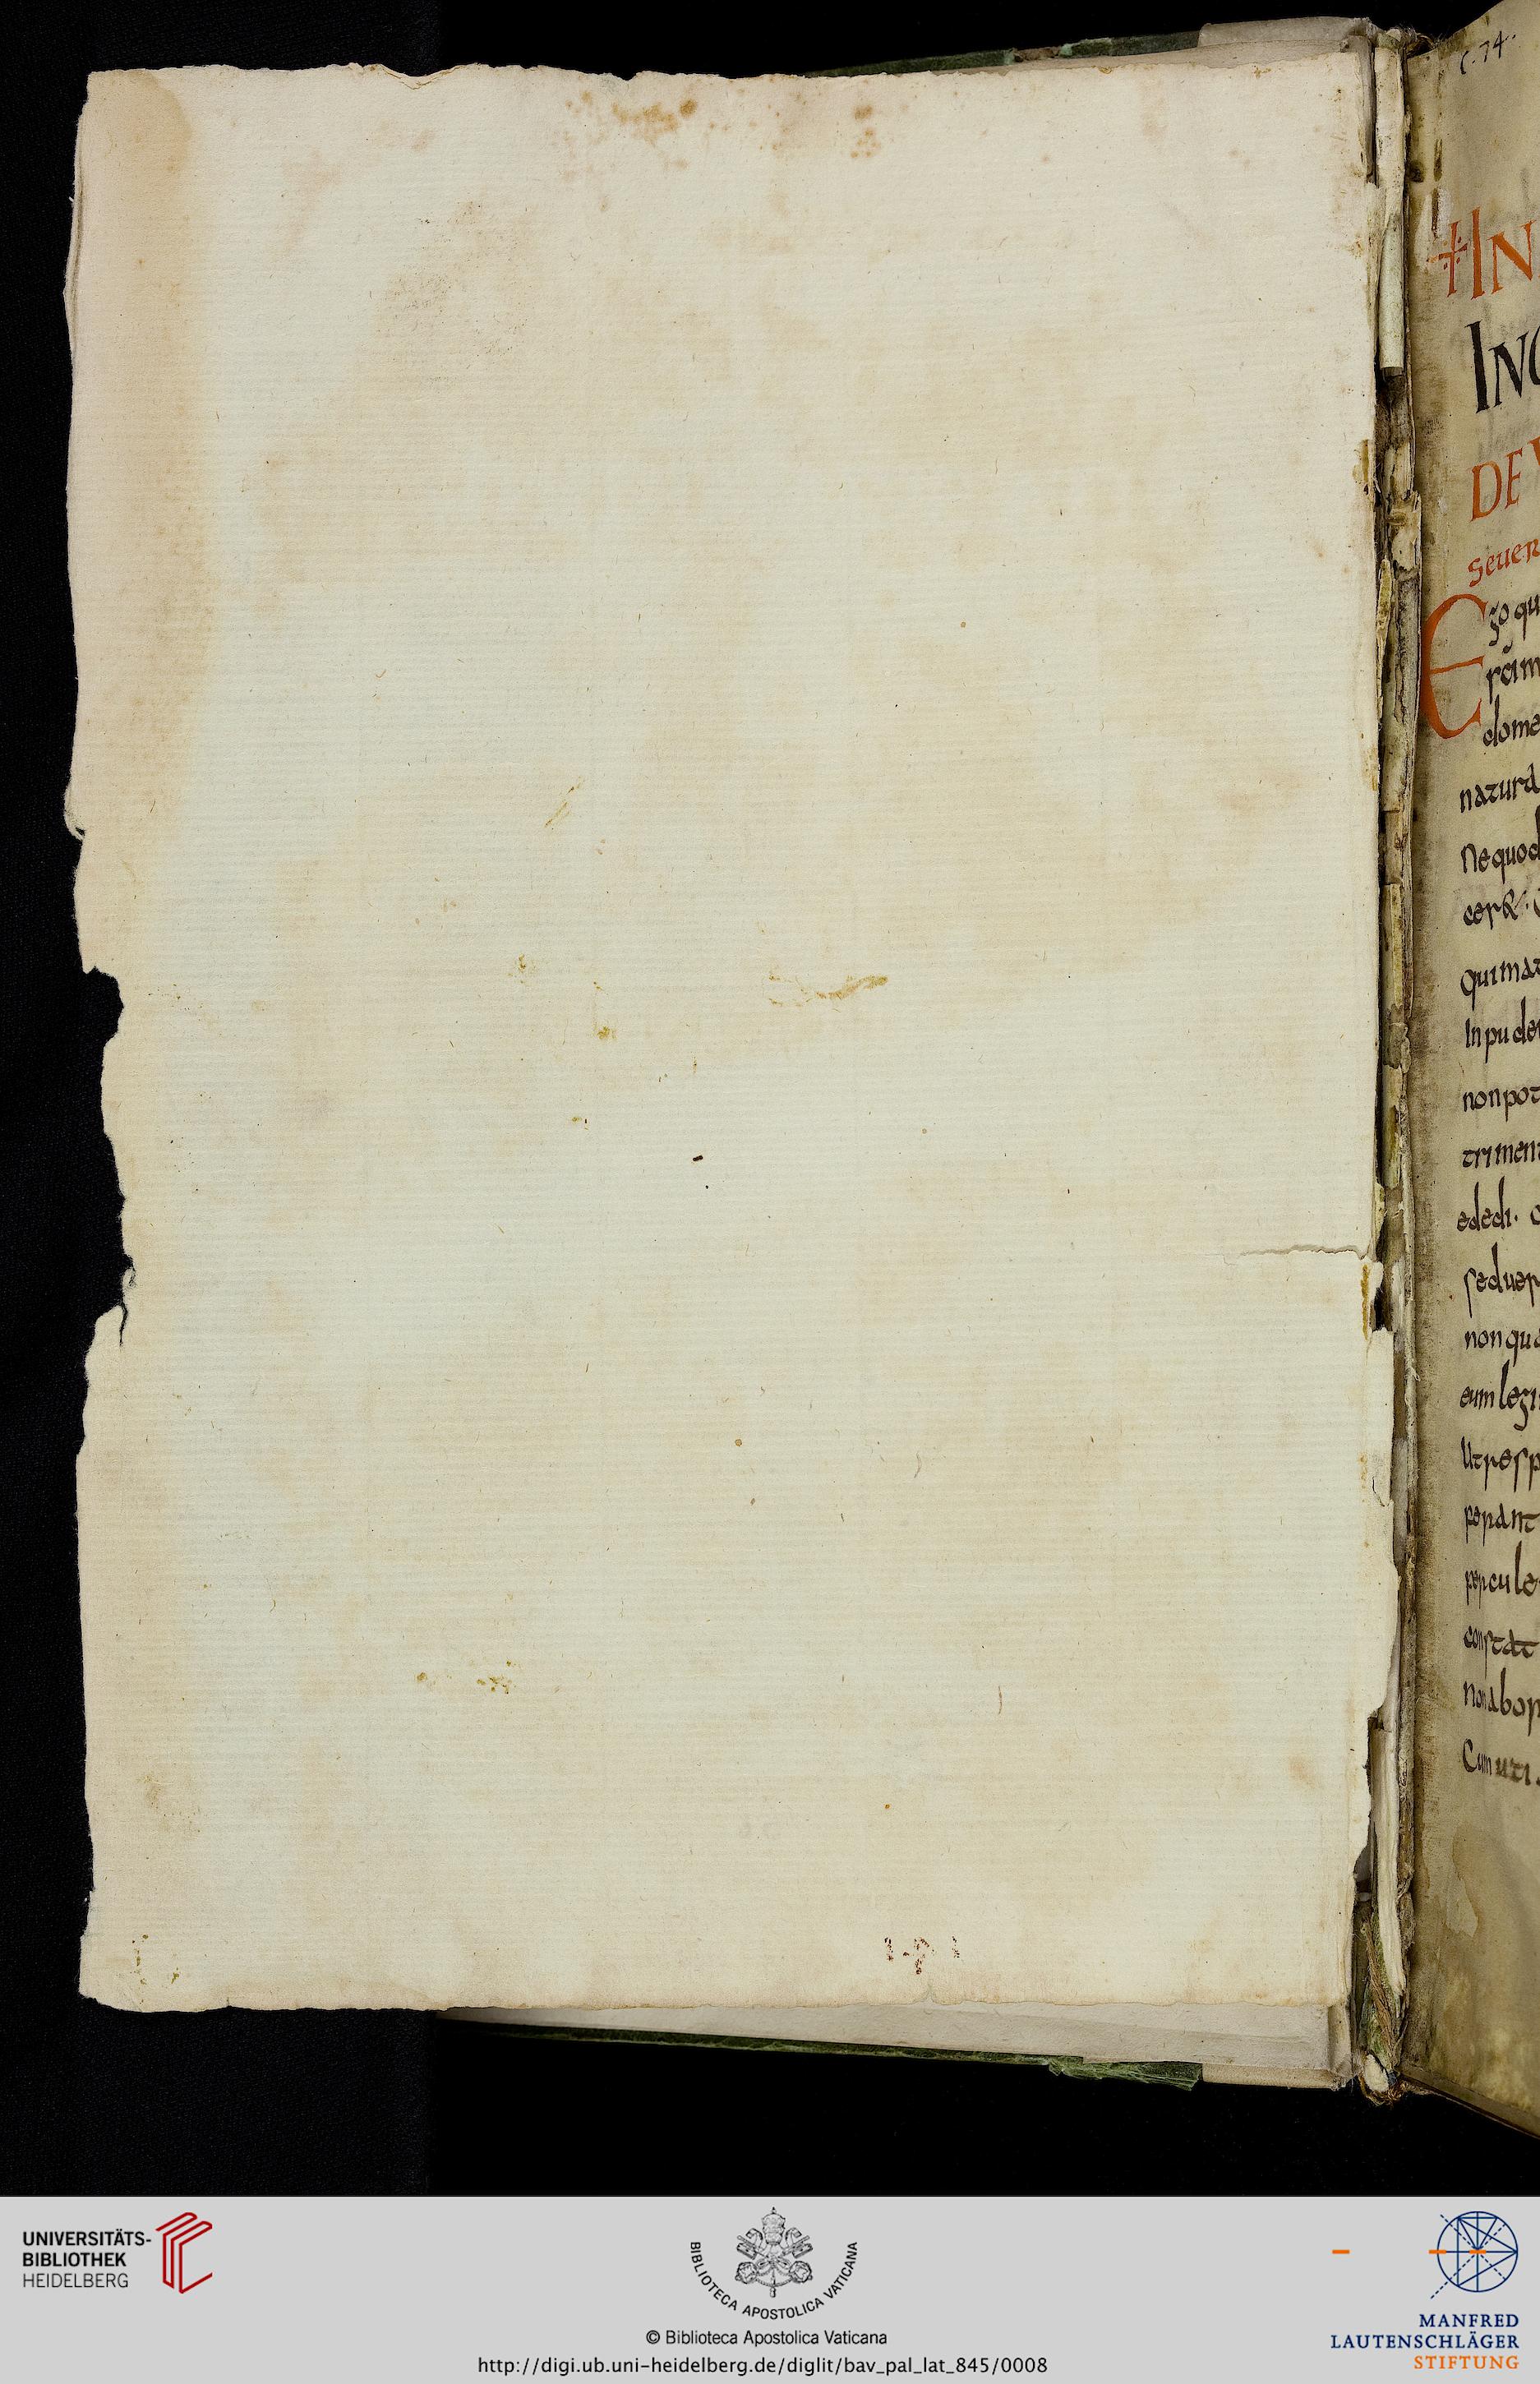 c. 74.
IN
INC
DE
seuer
Ego qu
domE
natura
Nequod
cer&·
Quimat
Inpude
nonpot
trimen
ededi·
seduer
nonqua
eumlegi
Utresp
perant
percule
constat
Nonabor
Cumuti
UNIVERSITÄTS-
BIBLIOTHEK
HEIDELBERG
BIBLIOTECA APOSTOLICA VATICANA
© Biblioteca Apostolica Vaticana
http://digi.ub.uni-heidelberg.de/diglit/bav_pal_lat_845/0008
MANFRED
LAUTENSCHLÄGER
STIFTUNG